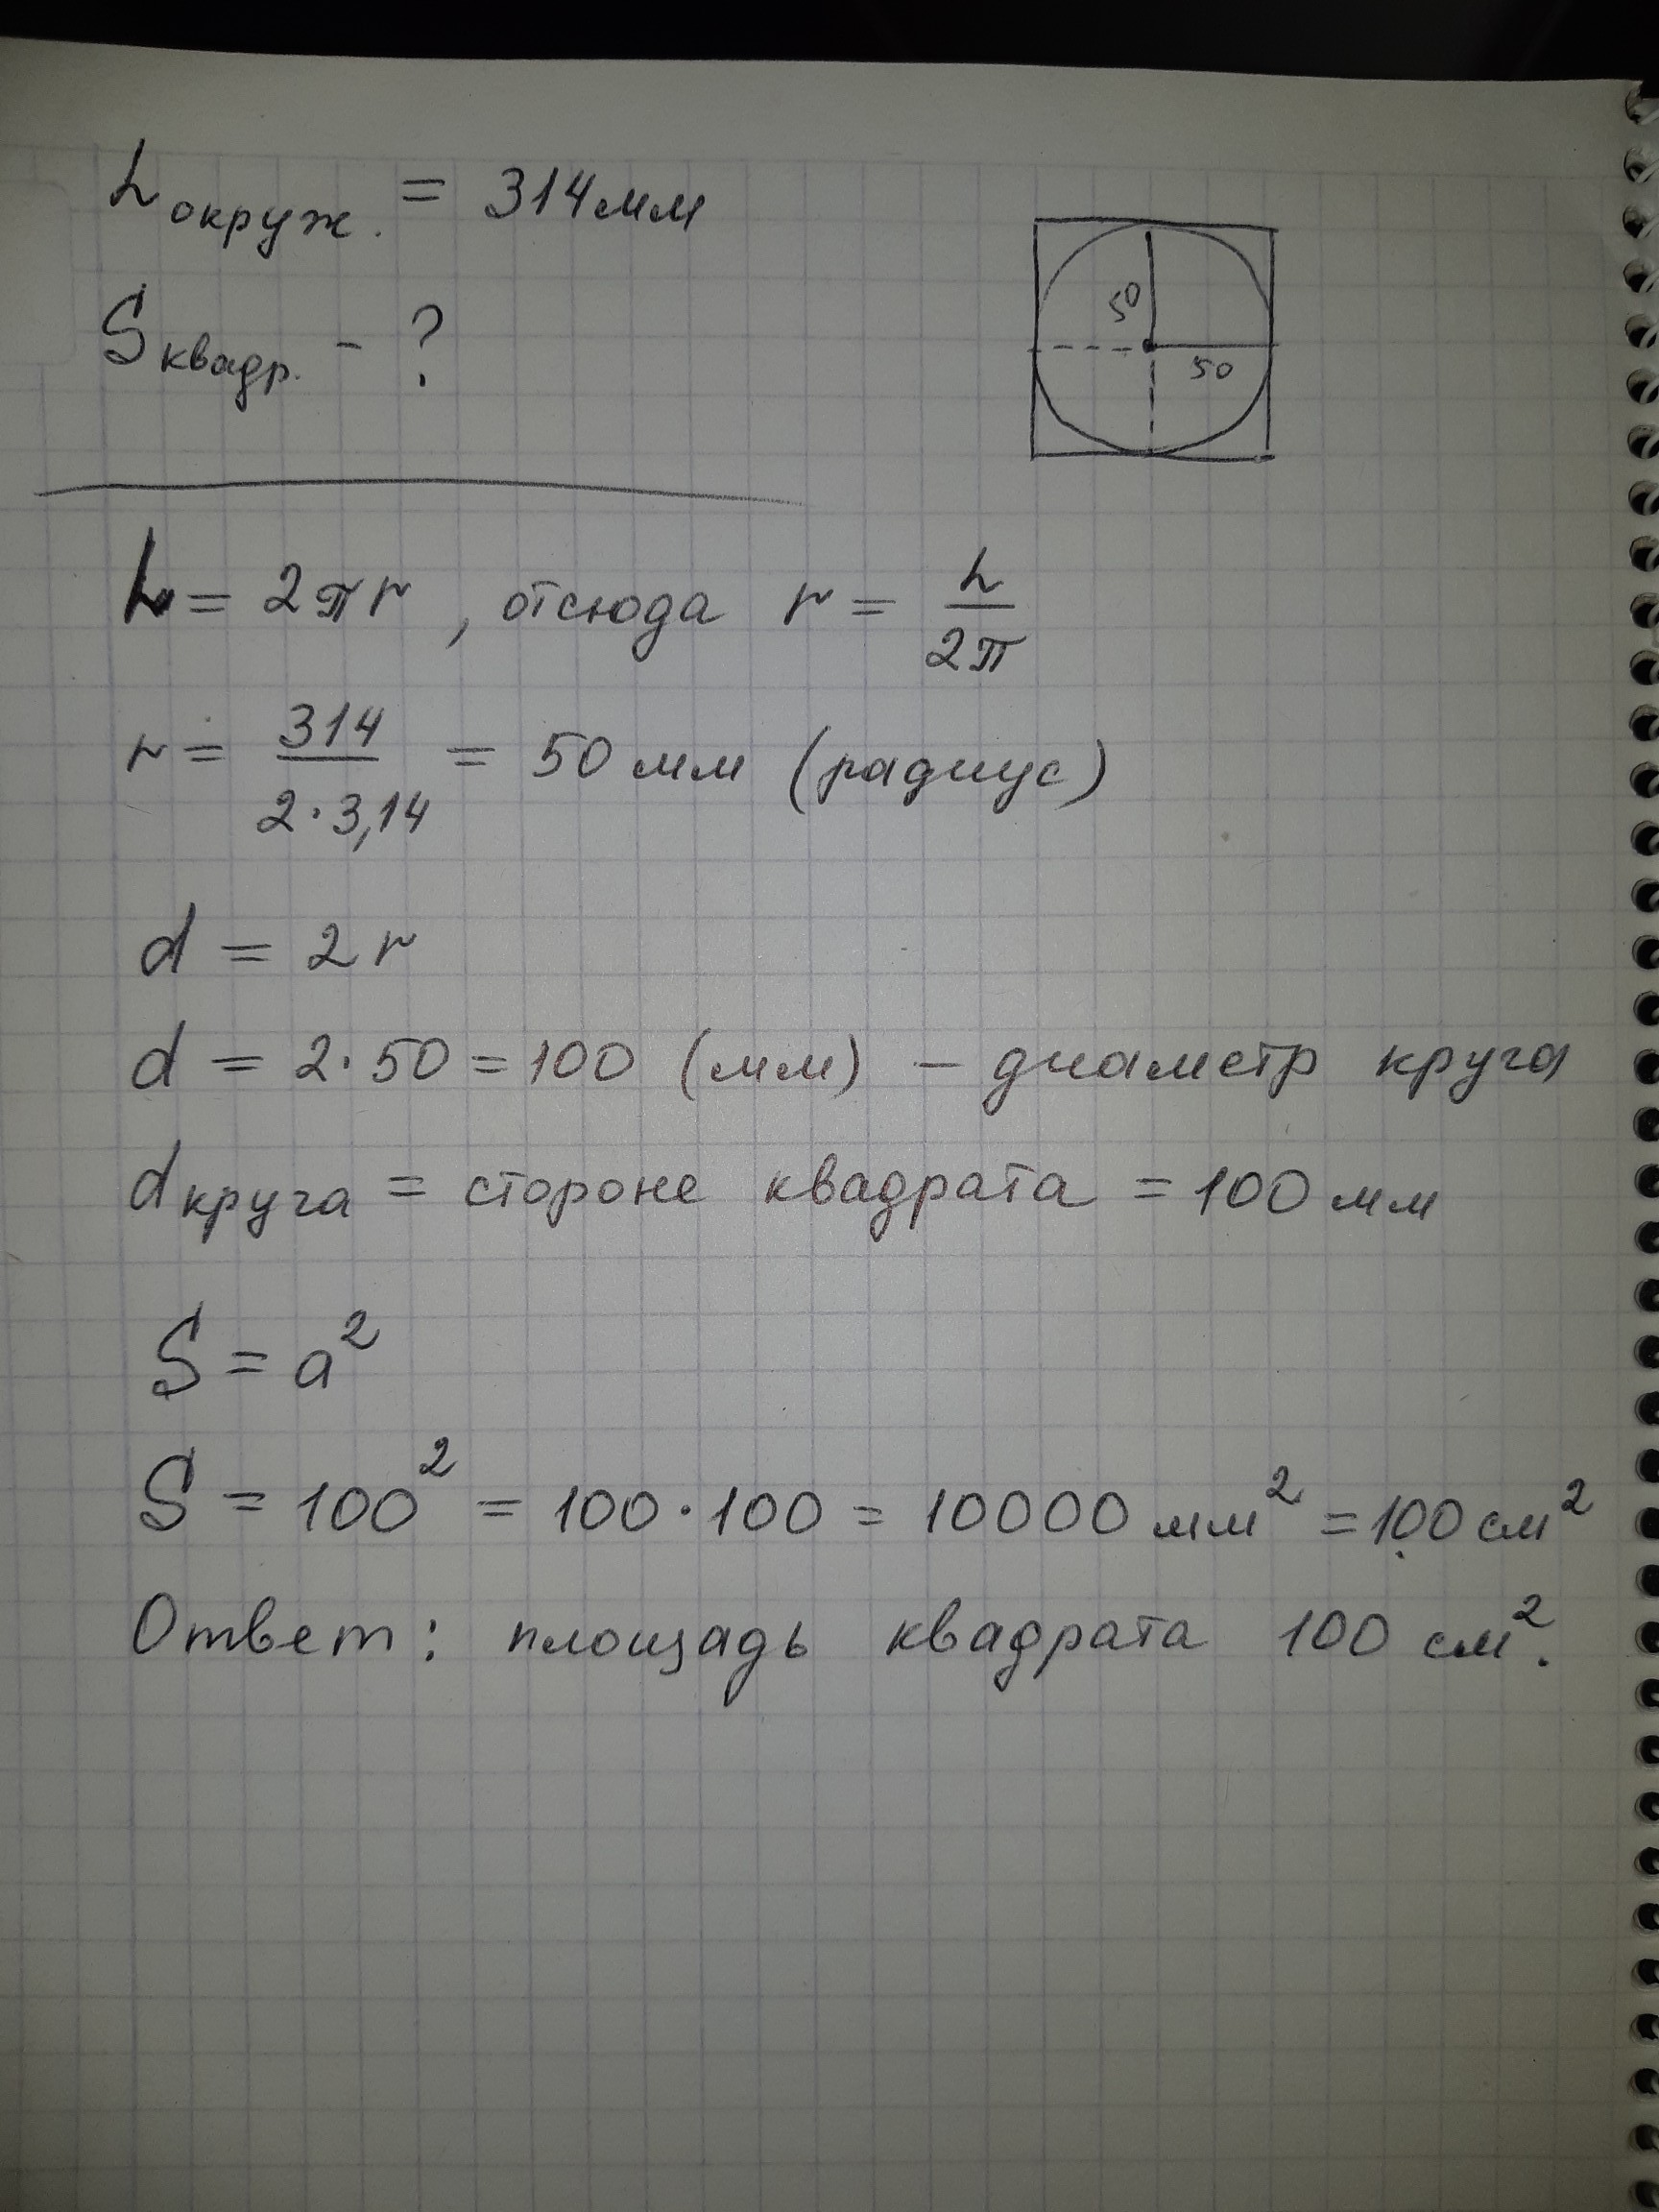 L окруж. = 314 мм
S квадр. - ?
50
50
L = 2πr, отсюда r = L/2π
r = 314/2·3,14 = 50 мм (радиус)
d = 2r
d = 2·50 = 100 (мм) – диаметр круга
d круга = стороне квадрата = 100 мм
S = a²
S = 100² = 100·100 = 10000 мм² = 100 см²
Ответ: площадь квадрата 100 см².